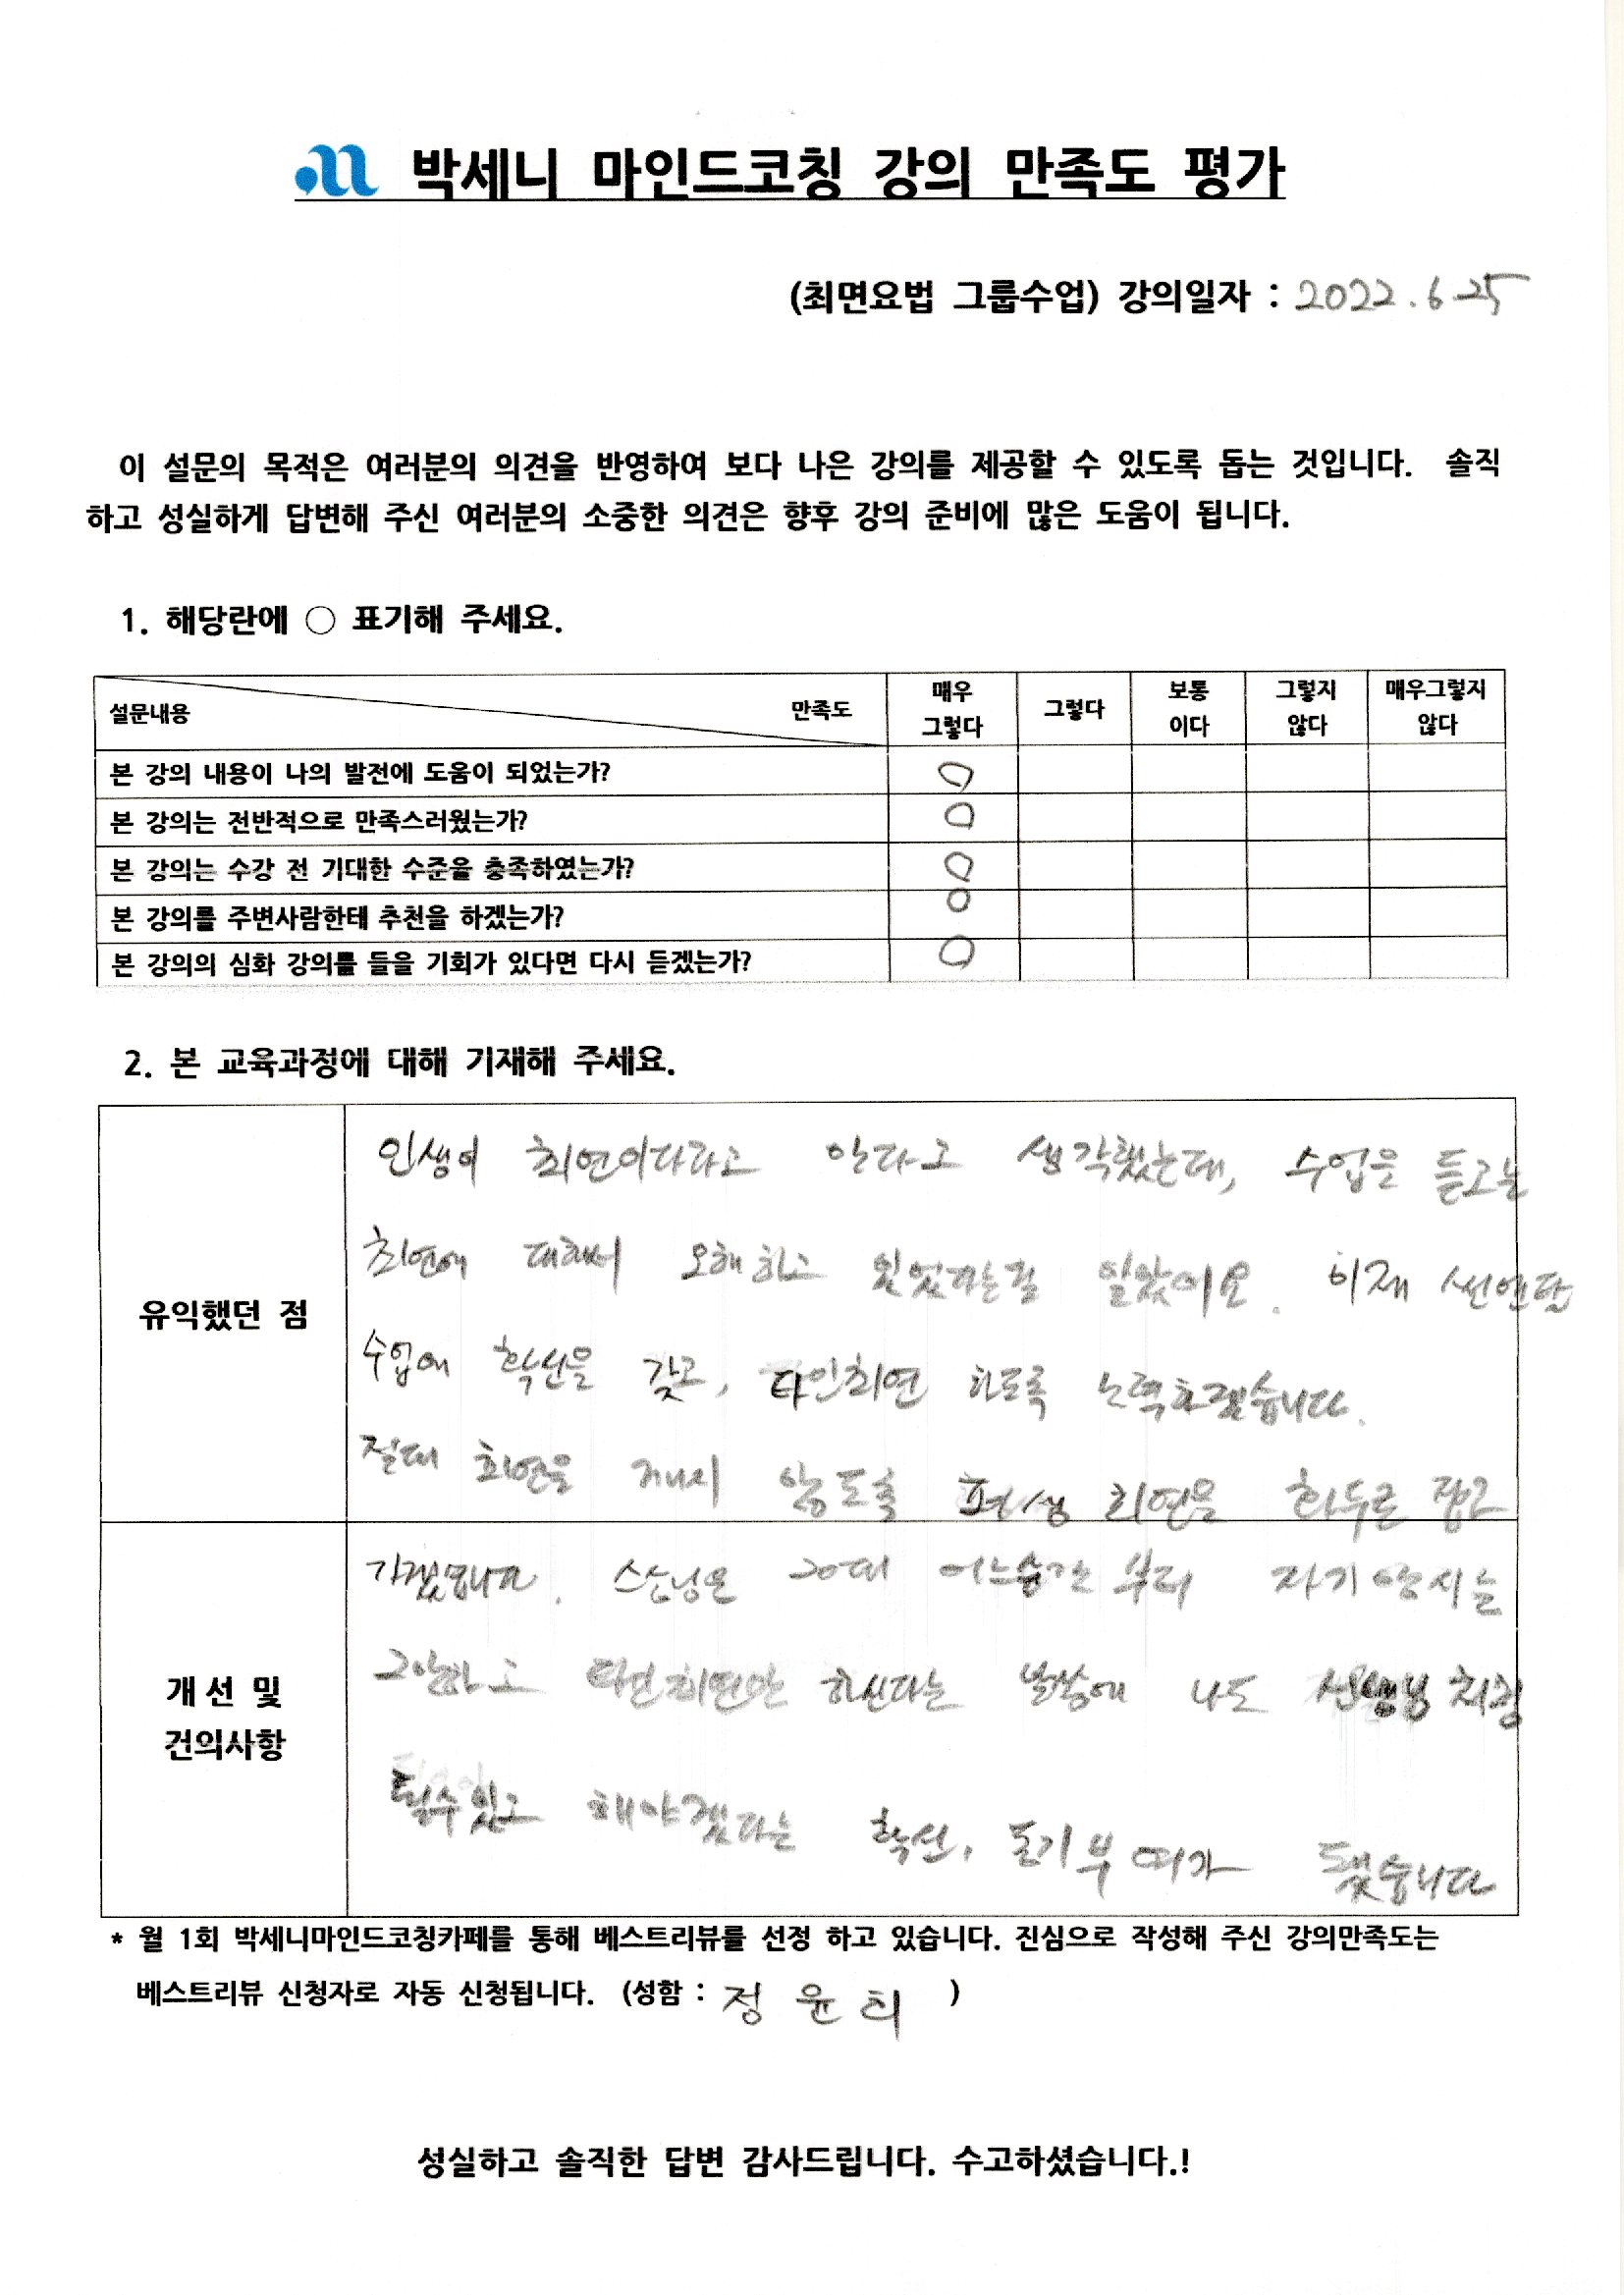 박세니 마인드코칭 강의 만족도 평가
(최면요법 그룹수업) 강의일자 : 2022.6.25
이 설문의 목적은 여러분의 의견을 반영하여 보다 나은 강의를 제공할 수 있도록 돕는 것입니다. 솔직
하고 성실하게 답변해 주신 여러분의 소중한 의견은 향후 강의 준비에 많은 도움이 됩니다.
1. 해당란에 ○ 표기해 주세요.
설문내용 만족도 매우 그렇다 그렇다 보통 이다 그렇지 않다 매우그렇지 않다
본 강의 내용이 나의 발전에 도움이 되었는가? ○
본 강의는 전반적으로 만족스러웠는가? ○
본 강의는 수강 전 기대한 수준을 충족하였는가? ○
본 강의를 주변사람한테 추천을 하겠는가? ○
본 강의의 심화 강의를 들을 기회가 있다면 다시 듣겠는가? ○
2. 본 교육과정에 대해 기재해 주세요.
유익했던 점
인생이 최면이다라고 안다고 생각했는데, 수업을 듣고는
최면에 대해서 오해하고 있었다는걸 알았어요. 이제
수업에 확신을 갖고, 타인최면 하도록 노력하겠습니다.
절대 최면을 깨지 않도록 평생 최면을 화두로 잡고
개선 및
건의사항
가겠습니다. 20대 어느순간부터 자기암시는
그만하고 타인최면만 하신다는 말씀에 나도 선생님처럼
될수있고 해야겠다는 확신, 동기부여가 됐습니다
* 월 1회 박세니마인드코칭카페를 통해 베스트리뷰를 선정 하고 있습니다. 진심으로 작성해 주신 강의만족도는
베스트리뷰 신청자로 자동 신청됩니다. (성함 : 정윤희 )
성실하고 솔직한 답변 감사드립니다. 수고하셨습니다.!